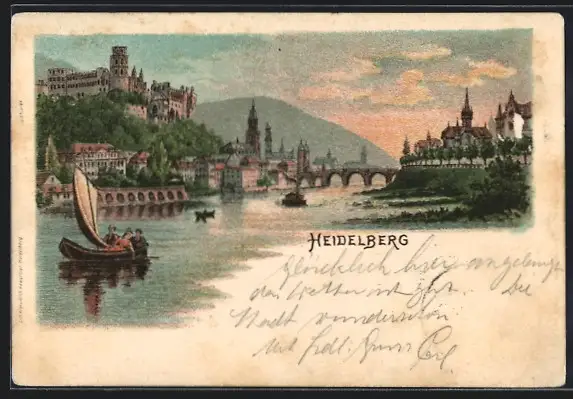 HEIDELBERG
Glücklich hier angelangt
das Wetter ist gut. Die
Stadt wunderschön
Mit hdl. Gruss Carl